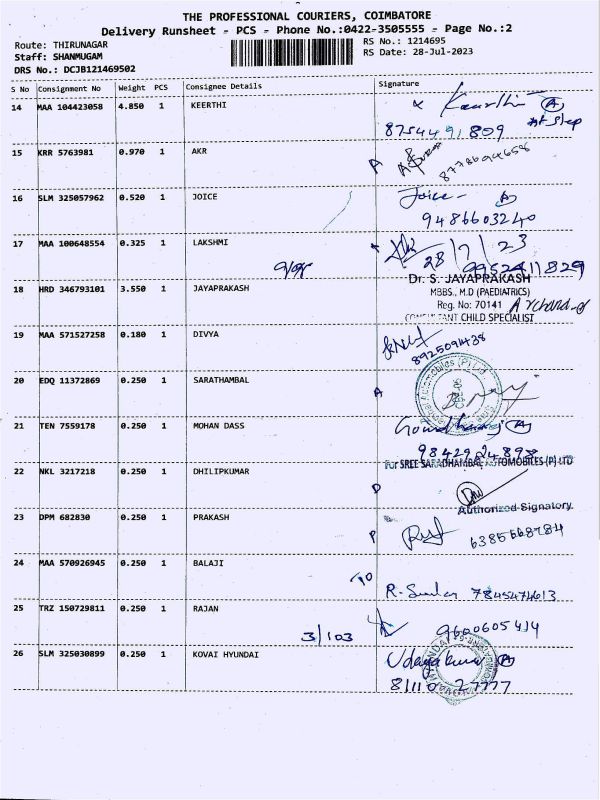 THE PROFESSIONAL COURIERS, COIMBATORE
Delivery Runsheet - PCS - Phone No.:0422-3505555 - Page No.:2
Route: THIRUNAGAR RS No.: 1214695
Staff: SHANMUGAM RS Date: 28-Jul-2023
DRS No.: DCJB121469502
S No Consignment No Weight PCS Consignee Details Signature
14 MAA 104423058 4.850 1 KEERTHI
8754491809
15 KRR 5763981 0.970 1 AKR
8778694658
16 SLM 325057962 0.520 1 JOICE Joice
9486603240
17 MAA 100648554 0.325 1 LAKSHMI 28/7/23
9952411829
18 HRD 346793101 3.550 1 JAYAPRAKASH Dr. S. JAYAPRAKASH
MBBS., M.D (PAEDIATRICS)
Reg. No: 70141
CONSULTANT CHILD SPECIALIST
19 MAA 571527258 0.180 1 DIVYA
8925091438
20 EDQ 11372869 0.250 1 SARATHAMBAL
21 TEN 7559178 0.250 1 MOHAN DASS
22 NKL 3217218 0.250 1 DHILIPKUMAR For SREE SARADHAMBAL AUTOMOBILES (P) LTD
Authorized Signatory
23 DPM 682830 0.250 1 PRAKASH
6385668784
24 MAA 570926945 0.250 1 BALAJI
25 TRZ 150729811 0.250 1 RAJAN 9600605414
3/103
26 SLM 325030899 0.250 1 KOVAI HYUNDAI